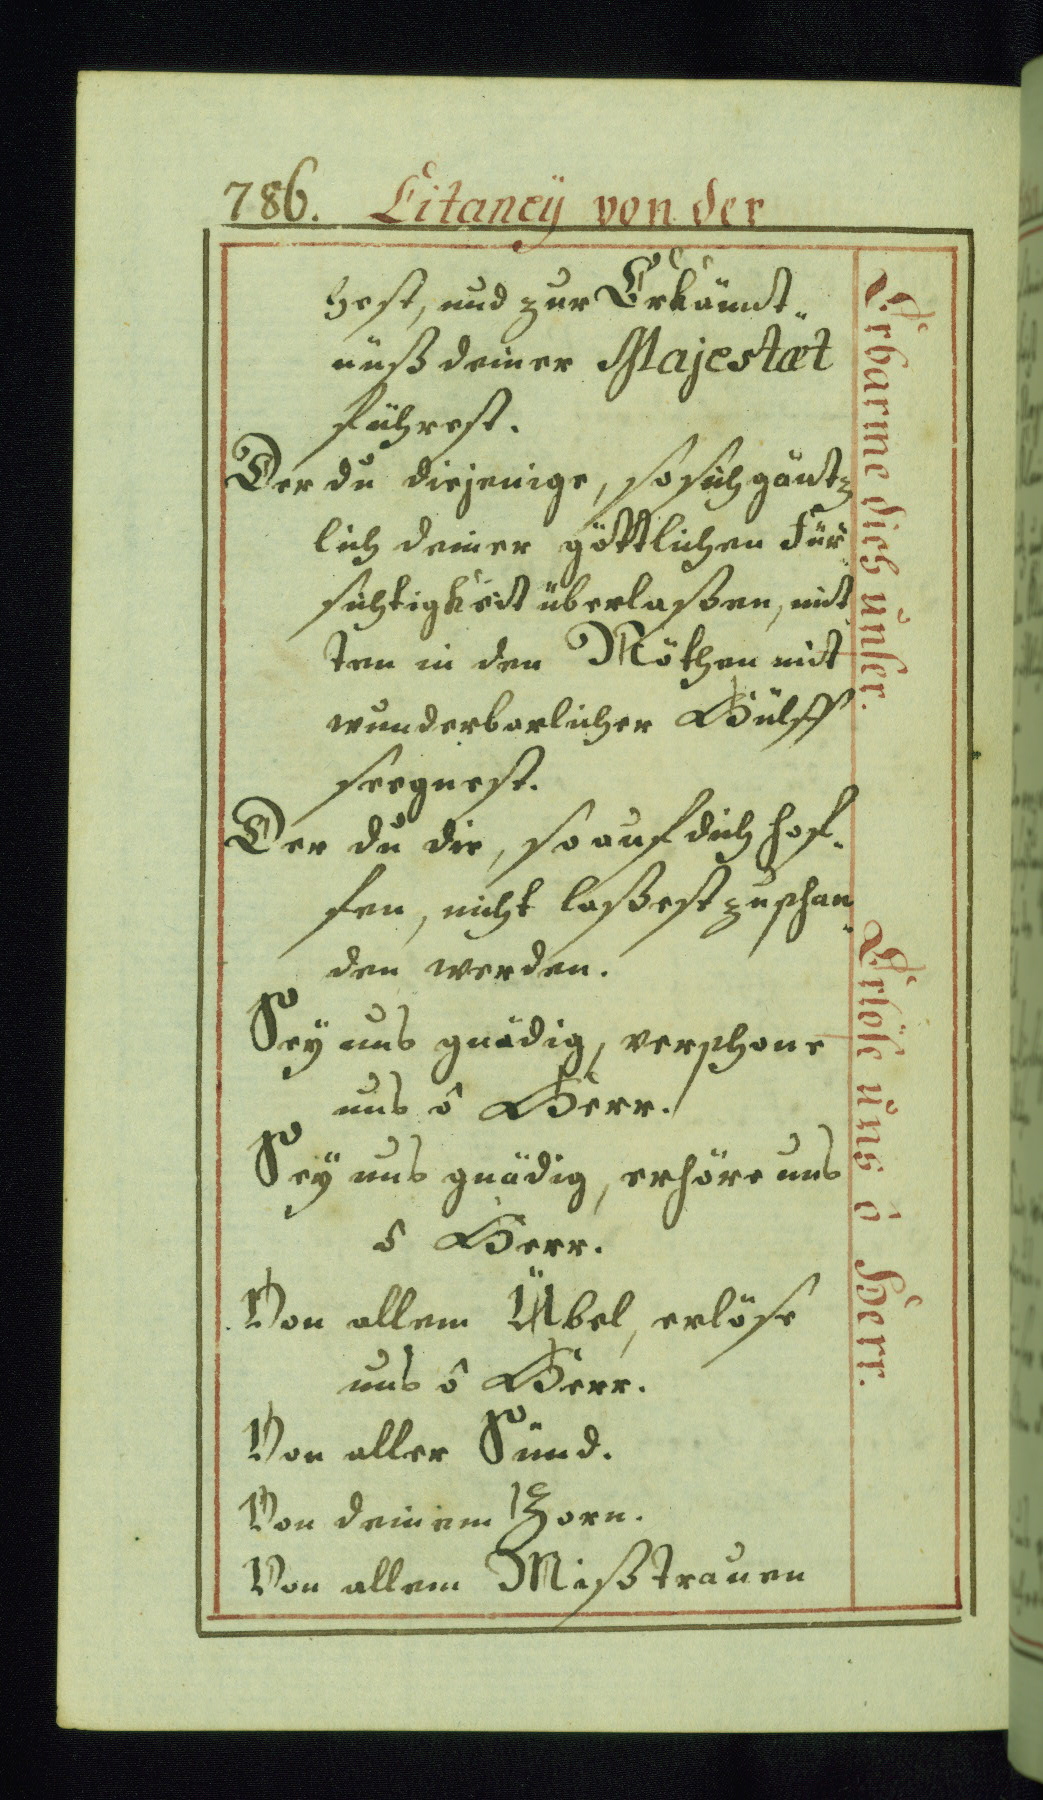 786. Litaneÿ von der
hest, und zur Erkänt-
nüß deiner Majestæt
führest.
Der du diejenige, so sich gäntz
lich deiner göttlichen Für-
sichtigkeit überlaßen, mit
ten in den Nöthen mit
wunderbarlicher Hülff
seegnest.
Der du die, so auf dich hof-
fen, nicht laßest zuschan-
den werden.
Seÿ uns gnädig, verschone
uns ô Herr.
Seÿ uns gnädig, erhöre uns
ô Herr.
Von allem Übel, erlöse
uns ô Herr.
Von aller Sünd.
Von deinem Zorn.
Von allem Mißtrauen
Erbarme dich unser.
Erlöse uns ô Herr.